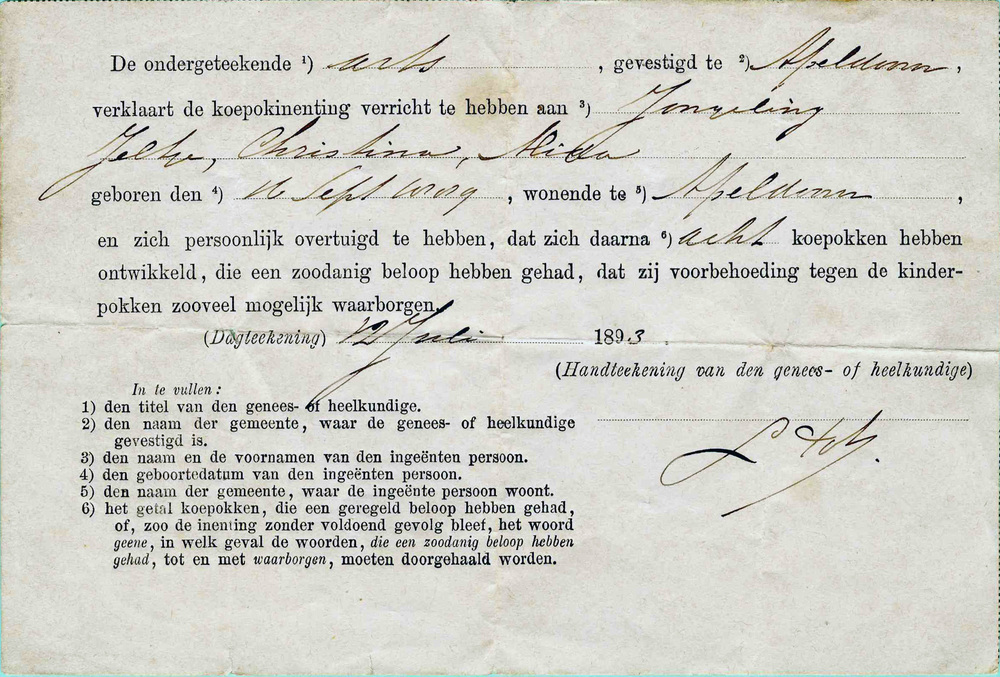 De ondergeteekende ¹) arts, gevestigd te ²) Apeldoorn,
verklaart de koepokinenting verricht te hebben aan ³) Jongeling
Jeltje, Christina, Alida
geboren den ⁴) Sept, wonende te ⁵) Apeldoorn,
en zich persoonlijk overtuigd te hebben, dat zich daarna ⁶) acht koepokken hebben
ontwikkeld, die een zoodanig beloop hebben gehad, dat zij voorbehoeding tegen de kinder-
pokken zooveel mogelijk waarborgen.
(Dagteekening) 12 Juli 1893
(Handteekening van den genees- of heelkundige)
In te vullen:
1) den titel van den genees- of heelkundige.
2) den naam der gemeente, waar de genees- of heelkundige
gevestigd is.
3) den naam en de voornamen van den ingeënten persoon.
4) den geboortedatum van den ingeënten persoon.
5) den naam der gemeente, waar de ingeënte persoon woont.
6) het getal koepokken, die een geregeld beloop hebben gehad,
of, zoo de inenting zonder voldoend gevolg bleef, het woord
geene, in welk geval de woorden, die een zoodanig beloop hebben
gehad, tot en met waarborgen, moeten doorgehaald worden.